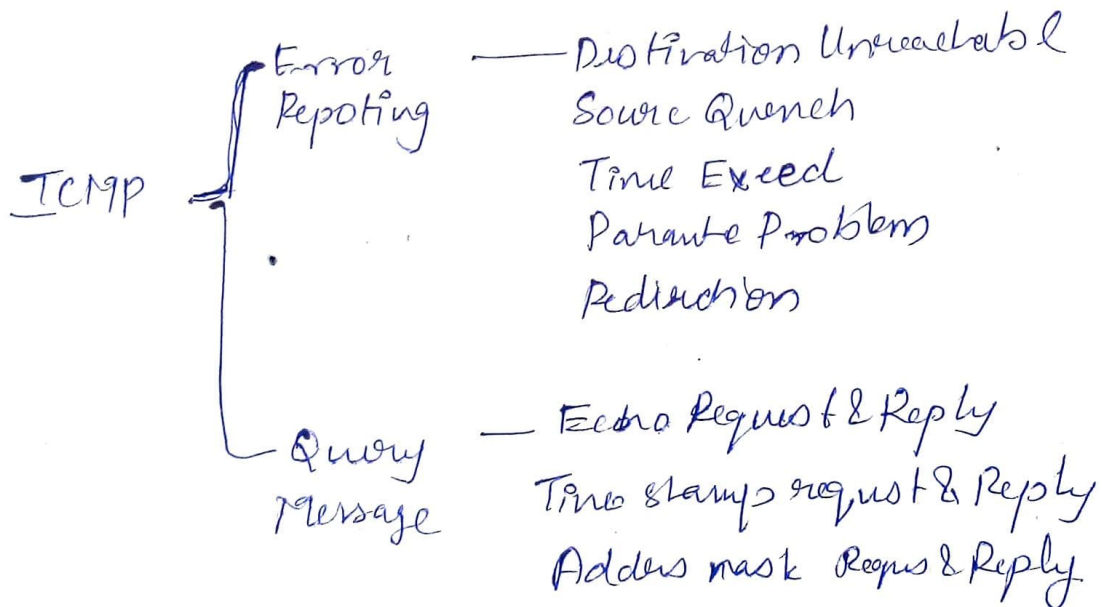 ICMP
Error
Repoting
Distination Unreachabl
Sourc Quench
Time Exeed
Paramte Problem
Redirection
Query
Message
Echo Request & Reply
Time stamp requst & Reply
Adders mask Requs & Reply